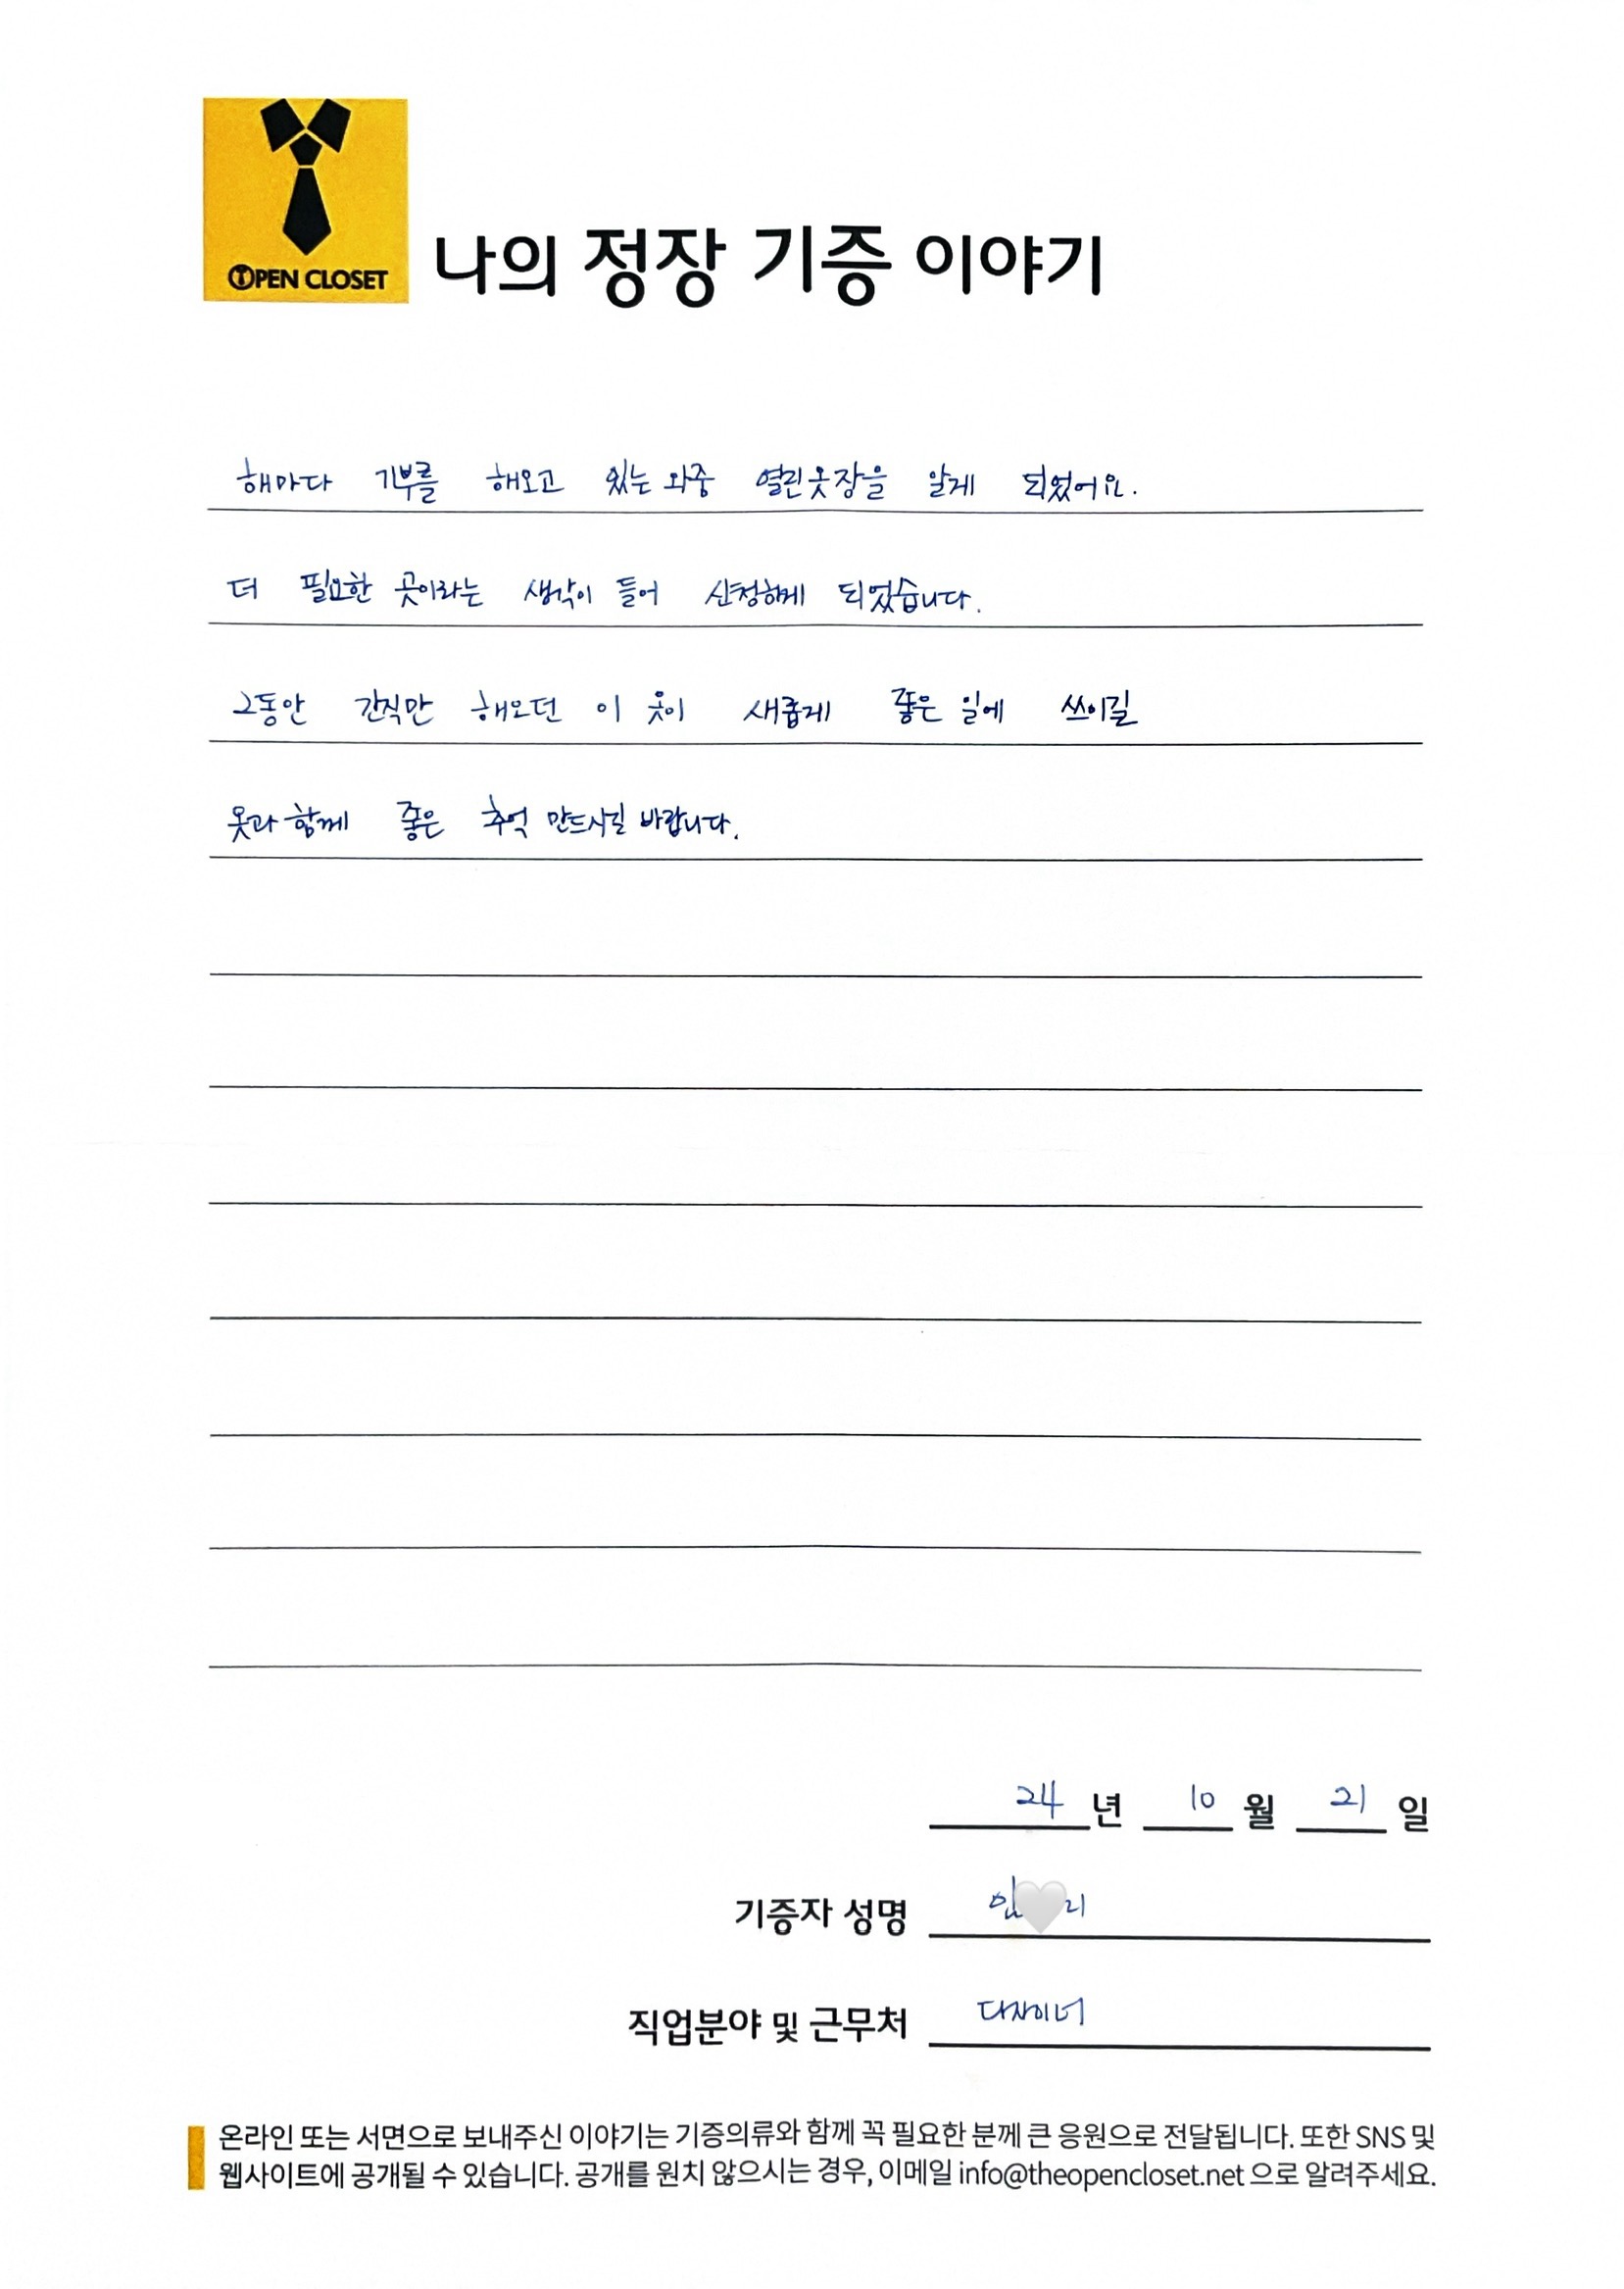 OPEN CLOSET
나의 정장 기증 이야기
해마다 기부를 해오고 있는 와중 열린옷장을 알게 되었어요.
더 필요한 곳이라는 생각이 들어 신청하게 되었습니다.
그동안 간직만 해오던 이 옷이 새롭게 좋은 일에 쓰이길
옷과 함께 좋은 추억 만드시길 바랍니다.
24 년 10 월 21 일
기증자 성명 임 리
직업분야 및 근무처 디자이너
온라인 또는 서면으로 보내주신 이야기는 기증의류와 함께 꼭 필요한 분께 큰 응원으로 전달됩니다. 또한 SNS 및
웹사이트에 공개될 수 있습니다. 공개를 원치 않으시는 경우, 이메일 info@theopencloset.net 으로 알려주세요.